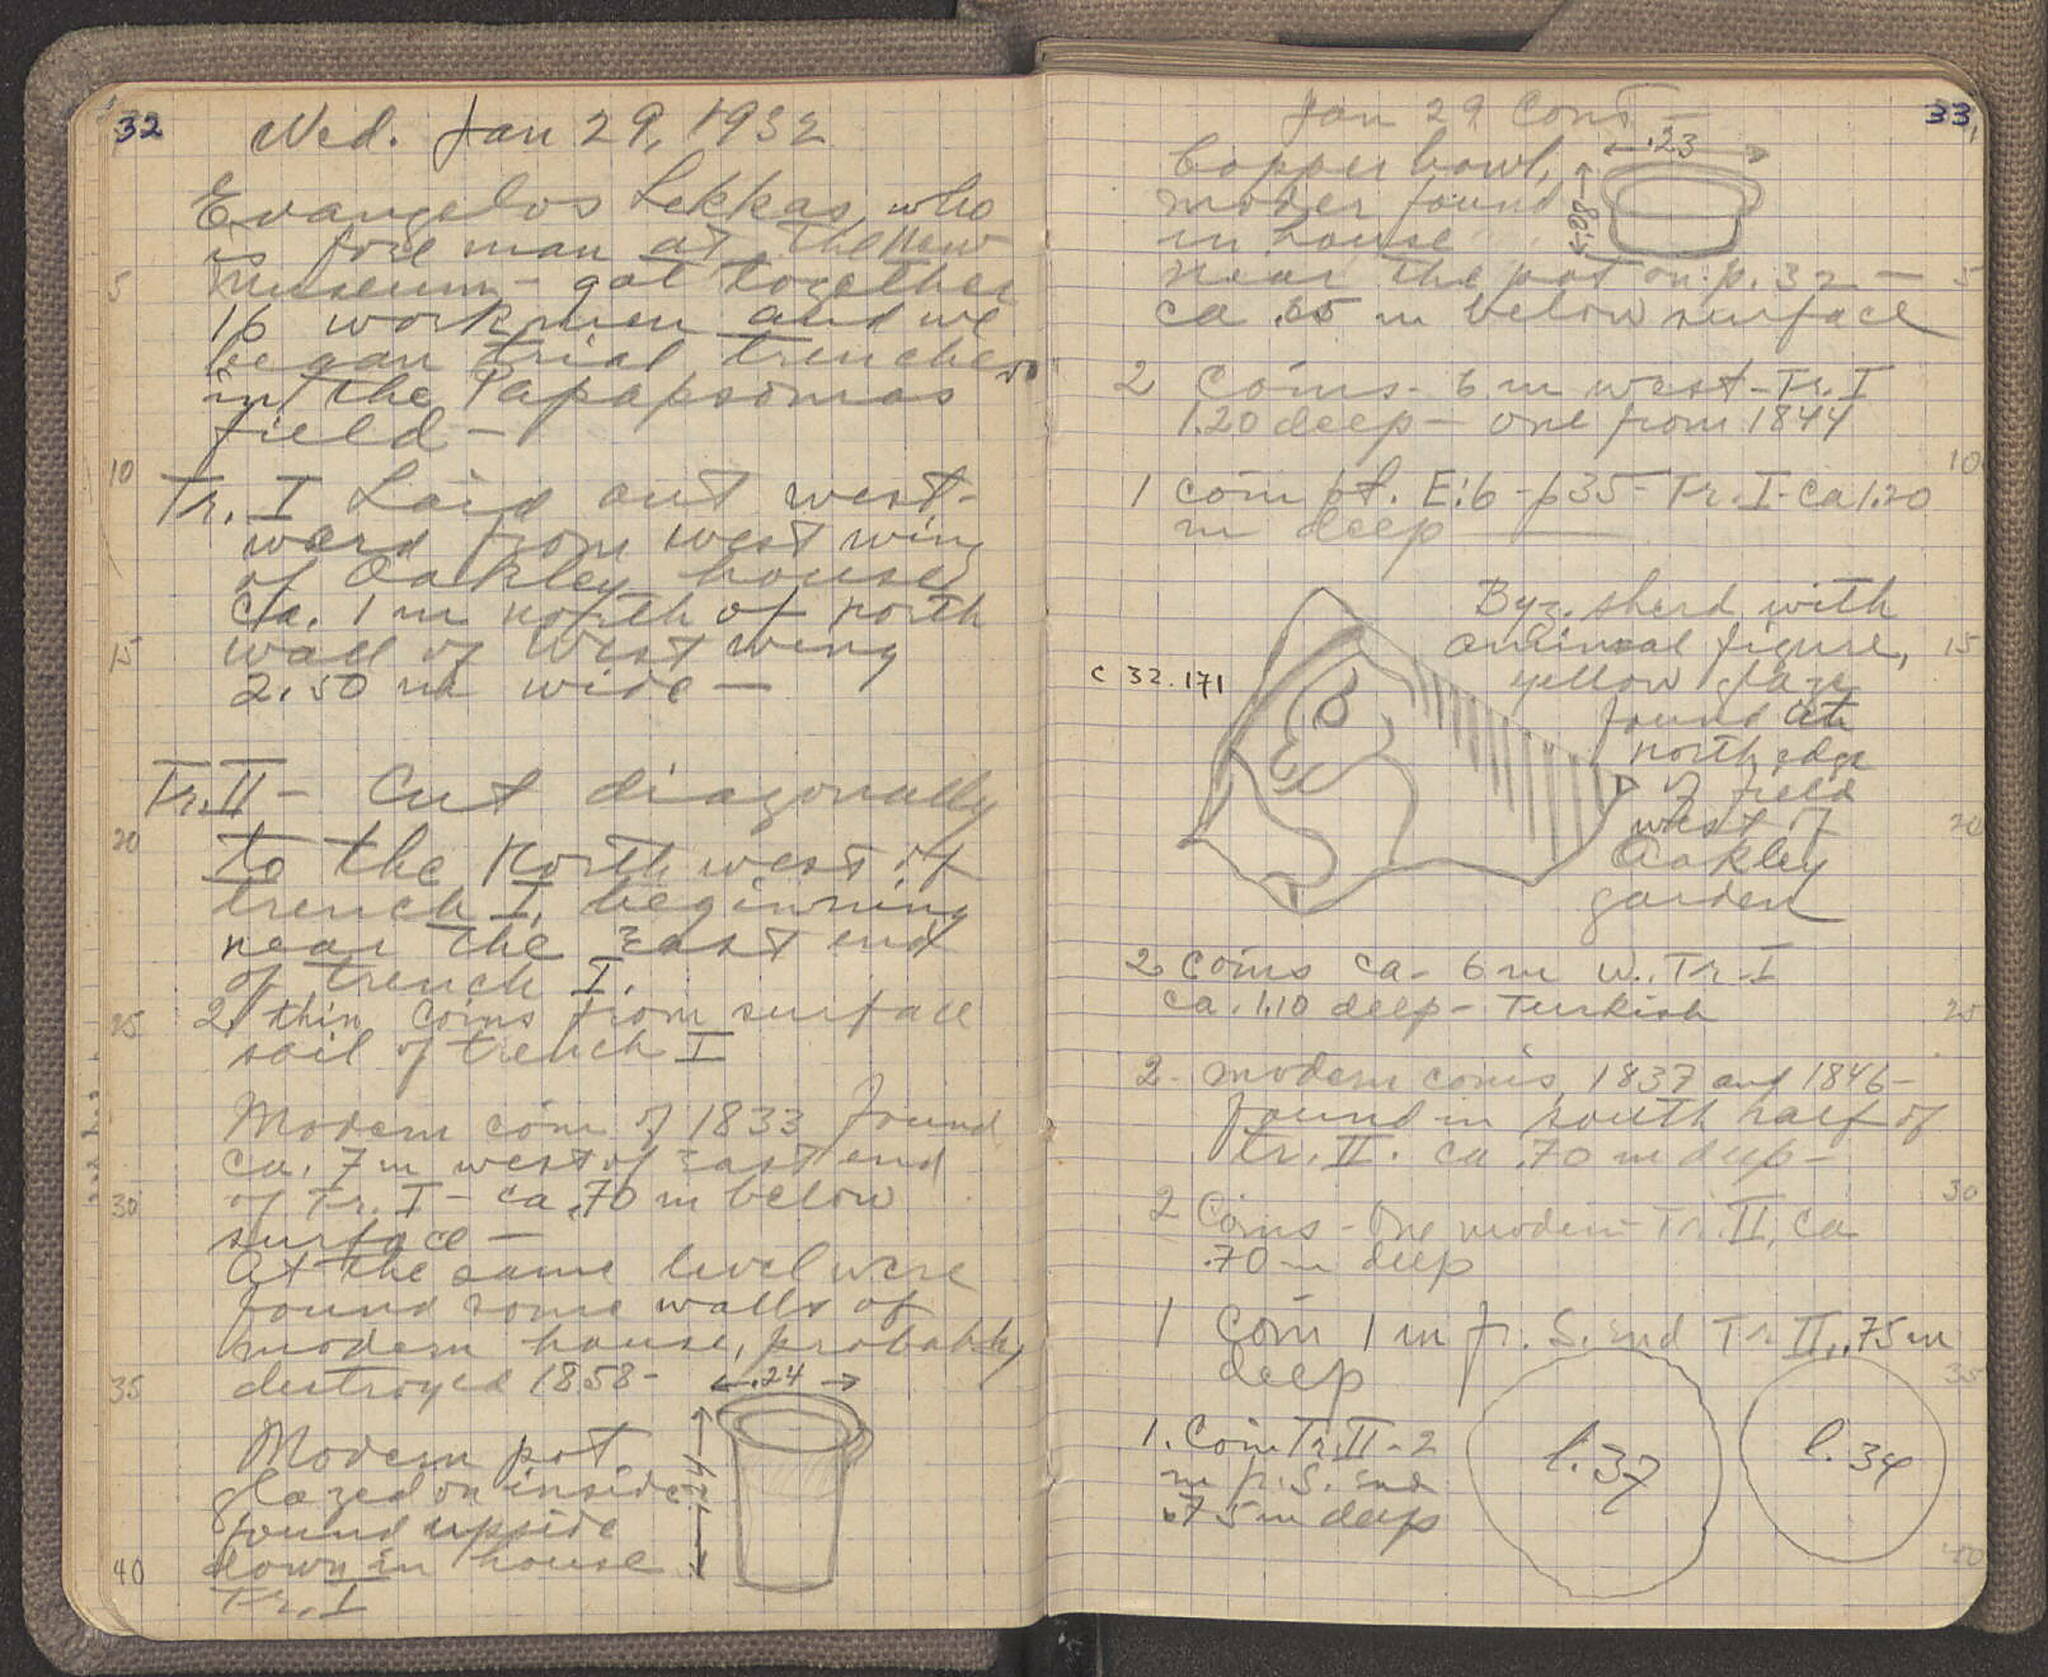 32
Wed. Jan 29, 1932
Evangelos Lekkas, who
is foreman at the New
5
Museum - got together
16 workmen and we
began trial trenches
in the Papapsomas
field -
10
Tr. I Laid out west-
ward from west wing
of Oakley house
ca. 1 m north of north
15
wall of West wing
2.50 m wide -
Tr. II - Cut diagonally
20
to the North west of
trench I, beginning
near the East end
of trench I.
25
2 thin coins from surface
soil of trench I
Modern coin of 1833 found
ca. 7 m west of East end
30
of Tr. I - ca .70 m below
surface -
At the same level were
found some walls of
modern house, probably
35
destroyed 1858-
.24
Modern pot
glazed on inside
.24
found upside
40
down in house
Tr. I
33
Jan 29 Cont -
.23
Copper bowl,
moder found
in house
near the pot on p. 32 -
5
ca .65 m below surface
2 Coins - 6 m west - Tr. I
1.20 deep - one from 1844
10
1 coin pt. E:6 - p 35 - Tr. I - ca 1.20
m deep
Byz. sherd with
animal figure,
15
yellow glaze
C 32.171
found at
north edge
of field
west of
20
Oakley
garden
2 coins ca. 6 m W. Tr. I
ca. 1.10 deep - Turkish
25
2. modern coins, 1837 and 1846 -
found in south half of
tr. II. ca .70 m deep -
30
2 Coins - One modern - Tr. II, ca
.70 m deep
1 Coin 1 m fr. S. end Tr. II, .75 m
deep
35
1. Coin Tr. II - 2
m fr. S. end
.75 m deep
l. 37
l. 34
40